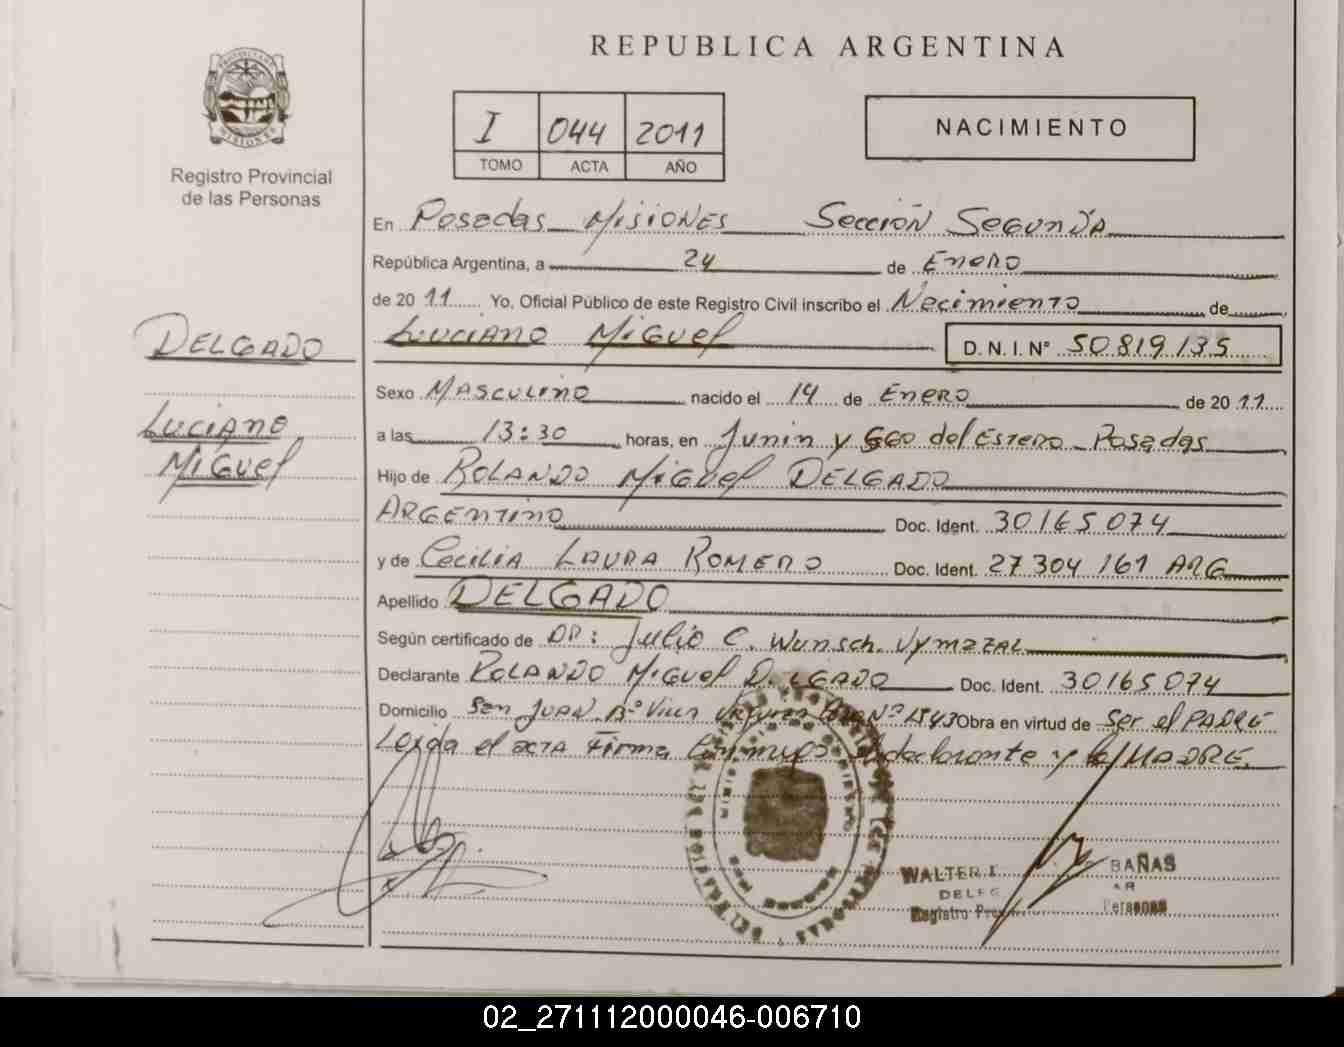 REPUBLICA ARGENTINA
PROVINCIA DE
MISIONES
Registro Provincial
de las Personas
I 044 2011
TOMO ACTA AÑO
NACIMIENTO
En Posadas Misiones Sección Segunda
República Argentina, a 24 de Enero
de 2011 Yo, Oficial Público de este Registro Civil inscribo el Nacimiento de
Luciano Miguel D. N. I. N° 50819135
DELGADO
Luciano
Miguel
Sexo Masculino nacido el 14 de Enero de 2011
a las 13:30 horas, en Junin y Sgo del Estero - Posadas
Hijo de Rolando Miguel DELGADO
Argentino Doc. Ident. 30165074
y de Cecilia Laura Romero Doc. Ident. 27304161 ARG
Apellido DELGADO
Según certificado de DR: Julio C. Wunsch. Vymazal
Declarante Rolando Miguel D.LGADO Doc. Ident. 30165074
Domicilio San Juan B° Villa N° 1843 Obra en virtud de Ser el PADRE
el acta Firma Conmigo declarante y la MADRE.
WALTER I BAÑAS
DELEG AR
Registro Pro Personas
02_271112000046-006710